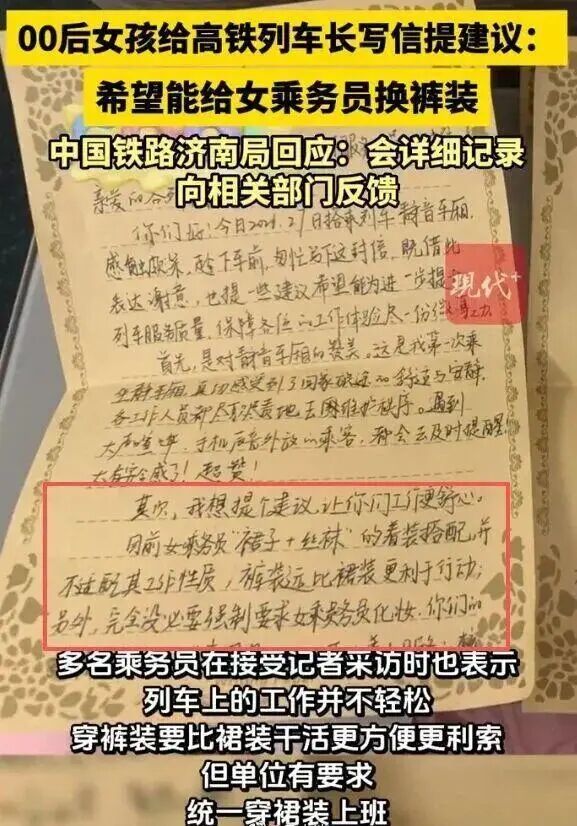 00后女孩给高铁列车长写信提建议：
希望能给女乘务员换裤装
中国铁路济南局回应：会详细记录
向相关部门反馈
亲爱的
你们好，今日搭乘列车静音车厢，
下车前，匆忙写下这封信，既借此
表达谢意，也提一些建议希望能为进一步提
列车服务质量，保障各位的工作体验尽一份微
现代+
首先，是对静音车厢的赞美。这是我第一次乘
感受到了回家
各工作人员都尽职尽责地去维护秩序。遇到
大声喧哗、手机声音外放的乘客，都会去及时提醒
太有安全感了！超赞！
其次，我想提个建议，让你们工作更舒心。
目前女乘务员“裙子+丝袜”的着装搭配，并
不适配其工作性质，裤装远比裙装更利于行动；
另外，完全没必要强制要求女乘务员化妆，你们的
多名乘务员在接受记者采访时也表示
列车上的工作并不轻松
穿裤装要比裙装干活更方便更利索
但单位有要求
统一穿裙装上班